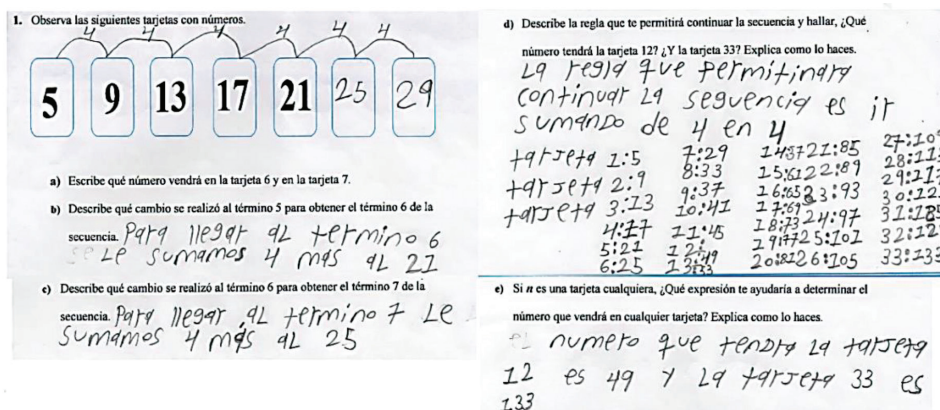 1. Observa las siguientes tarjetas con números.
4 4 4 4 4 4
5 9 13 17 21 25 29
a) Escribe qué número vendrá en la tarjeta 6 y en la tarjeta 7.
b) Describe qué cambio se realizó al término 5 para obtener el término 6 de la
secuencia. Para llegar al termino 6
se le sumamos 4 mas al 21
c) Describe qué cambio se realizó al término 6 para obtener el término 7 de la
secuencia. Para llegar al termino 7 Le
sumamos 4 más al 25
d) Describe la regla que te permitirá continuar la secuencia y hallar, ¿Qué
número tendrá la tarjeta 12? ¿Y la tarjeta 33? Explica como lo haces.
La regla que permitinara
continuar la seguencia es ir
sumando de 4 en 4
tarjeta 1:5 7:29 21:85
tarjeta 2:9 8:33 22:89
tarjeta 3:13 9:37 16:65 23:93
4:17 10:41 17:69 24:97
5:21 11:45 18:73 25:101
6:25 20:81 26:105 33:133
e) Si n es una tarjeta cualquiera, ¿Qué expresión te ayudaría a determinar el
número que vendrá en cualquier tarjeta? Explica como lo haces.
el numero que tendra la tarjeta
12 es 49 y la tarjeta 33 es
133